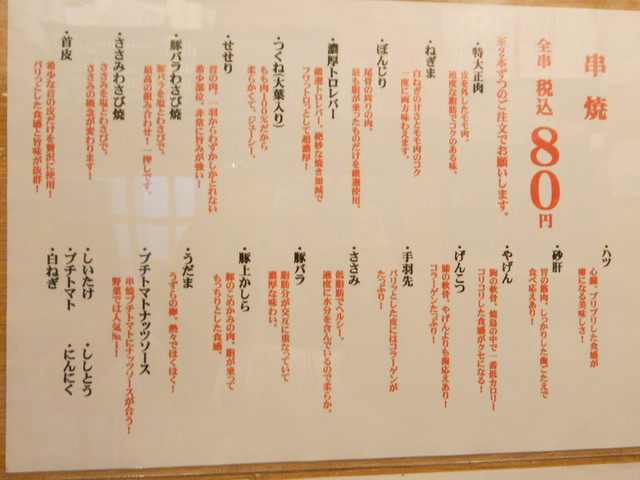 串焼
全串 税込 80円
※2本ずつのご注文でお願いします。
・特大正肉
皮を外したモモ肉。
適度な脂肪でコクのある味。
・ねぎま
白ねぎの甘さとモモ肉のコク
一度に両方味わえます。
・ぼんじり
尾骨の周りの肉。
最も脂が乗ったものだけを厳選使用。
・濃厚トロレバー
厳選トロレバー。絶妙な焼き加減で
フワッとトロッとして超濃厚!
・つくね(大葉入り)
もも肉100%だから
柔らかくて、ジューシー。
・せせり
首の肉、一羽からわずかしかとれない
希少部位。非常に旨みが強い!
・豚バラわさび焼
豚バラを塩とわさびで。
最高の組み合わせ!一押しです。
・ささみわさび焼
ささみを塩とわさびで。
ささみの概念が変わります!
・首皮
希少な首の皮だけを贅沢に使用!
パリッとした食感と旨味が抜群!
・ハツ
心臓。プリプリした食感が
癖になる美味しさ!
・砂肝
胃の筋肉。しっかりした歯ごたえで
食べ応えあり!
・やげん
胸の軟骨。焼鳥の中で一番低カロリー
コリコリした食感がクセになる!
・げんこつ
膝の軟骨。やげんよりも歯応えあり!
コラーゲンたっぷり!
・手羽先
パリッとした皮にはコラーゲンが
たっぷり!
・ささみ
低脂肪でヘルシー。
適度に水分を含んでいるので柔らか。
・豚バラ
脂肪分が交互に重なっていて
濃厚な味わい。
・豚上かしら
豚のこめかみの肉。脂が乗って
もっちりとした食感。
・うだま
うずらの卵。熱々でほくほく!
・プチトマトナッツソース
串焼プチトマトにナッツソースが合う!
野菜では人気No.1!
・しいたけ ・ししとう
・プチトマト ・にんにく
・白ねぎ